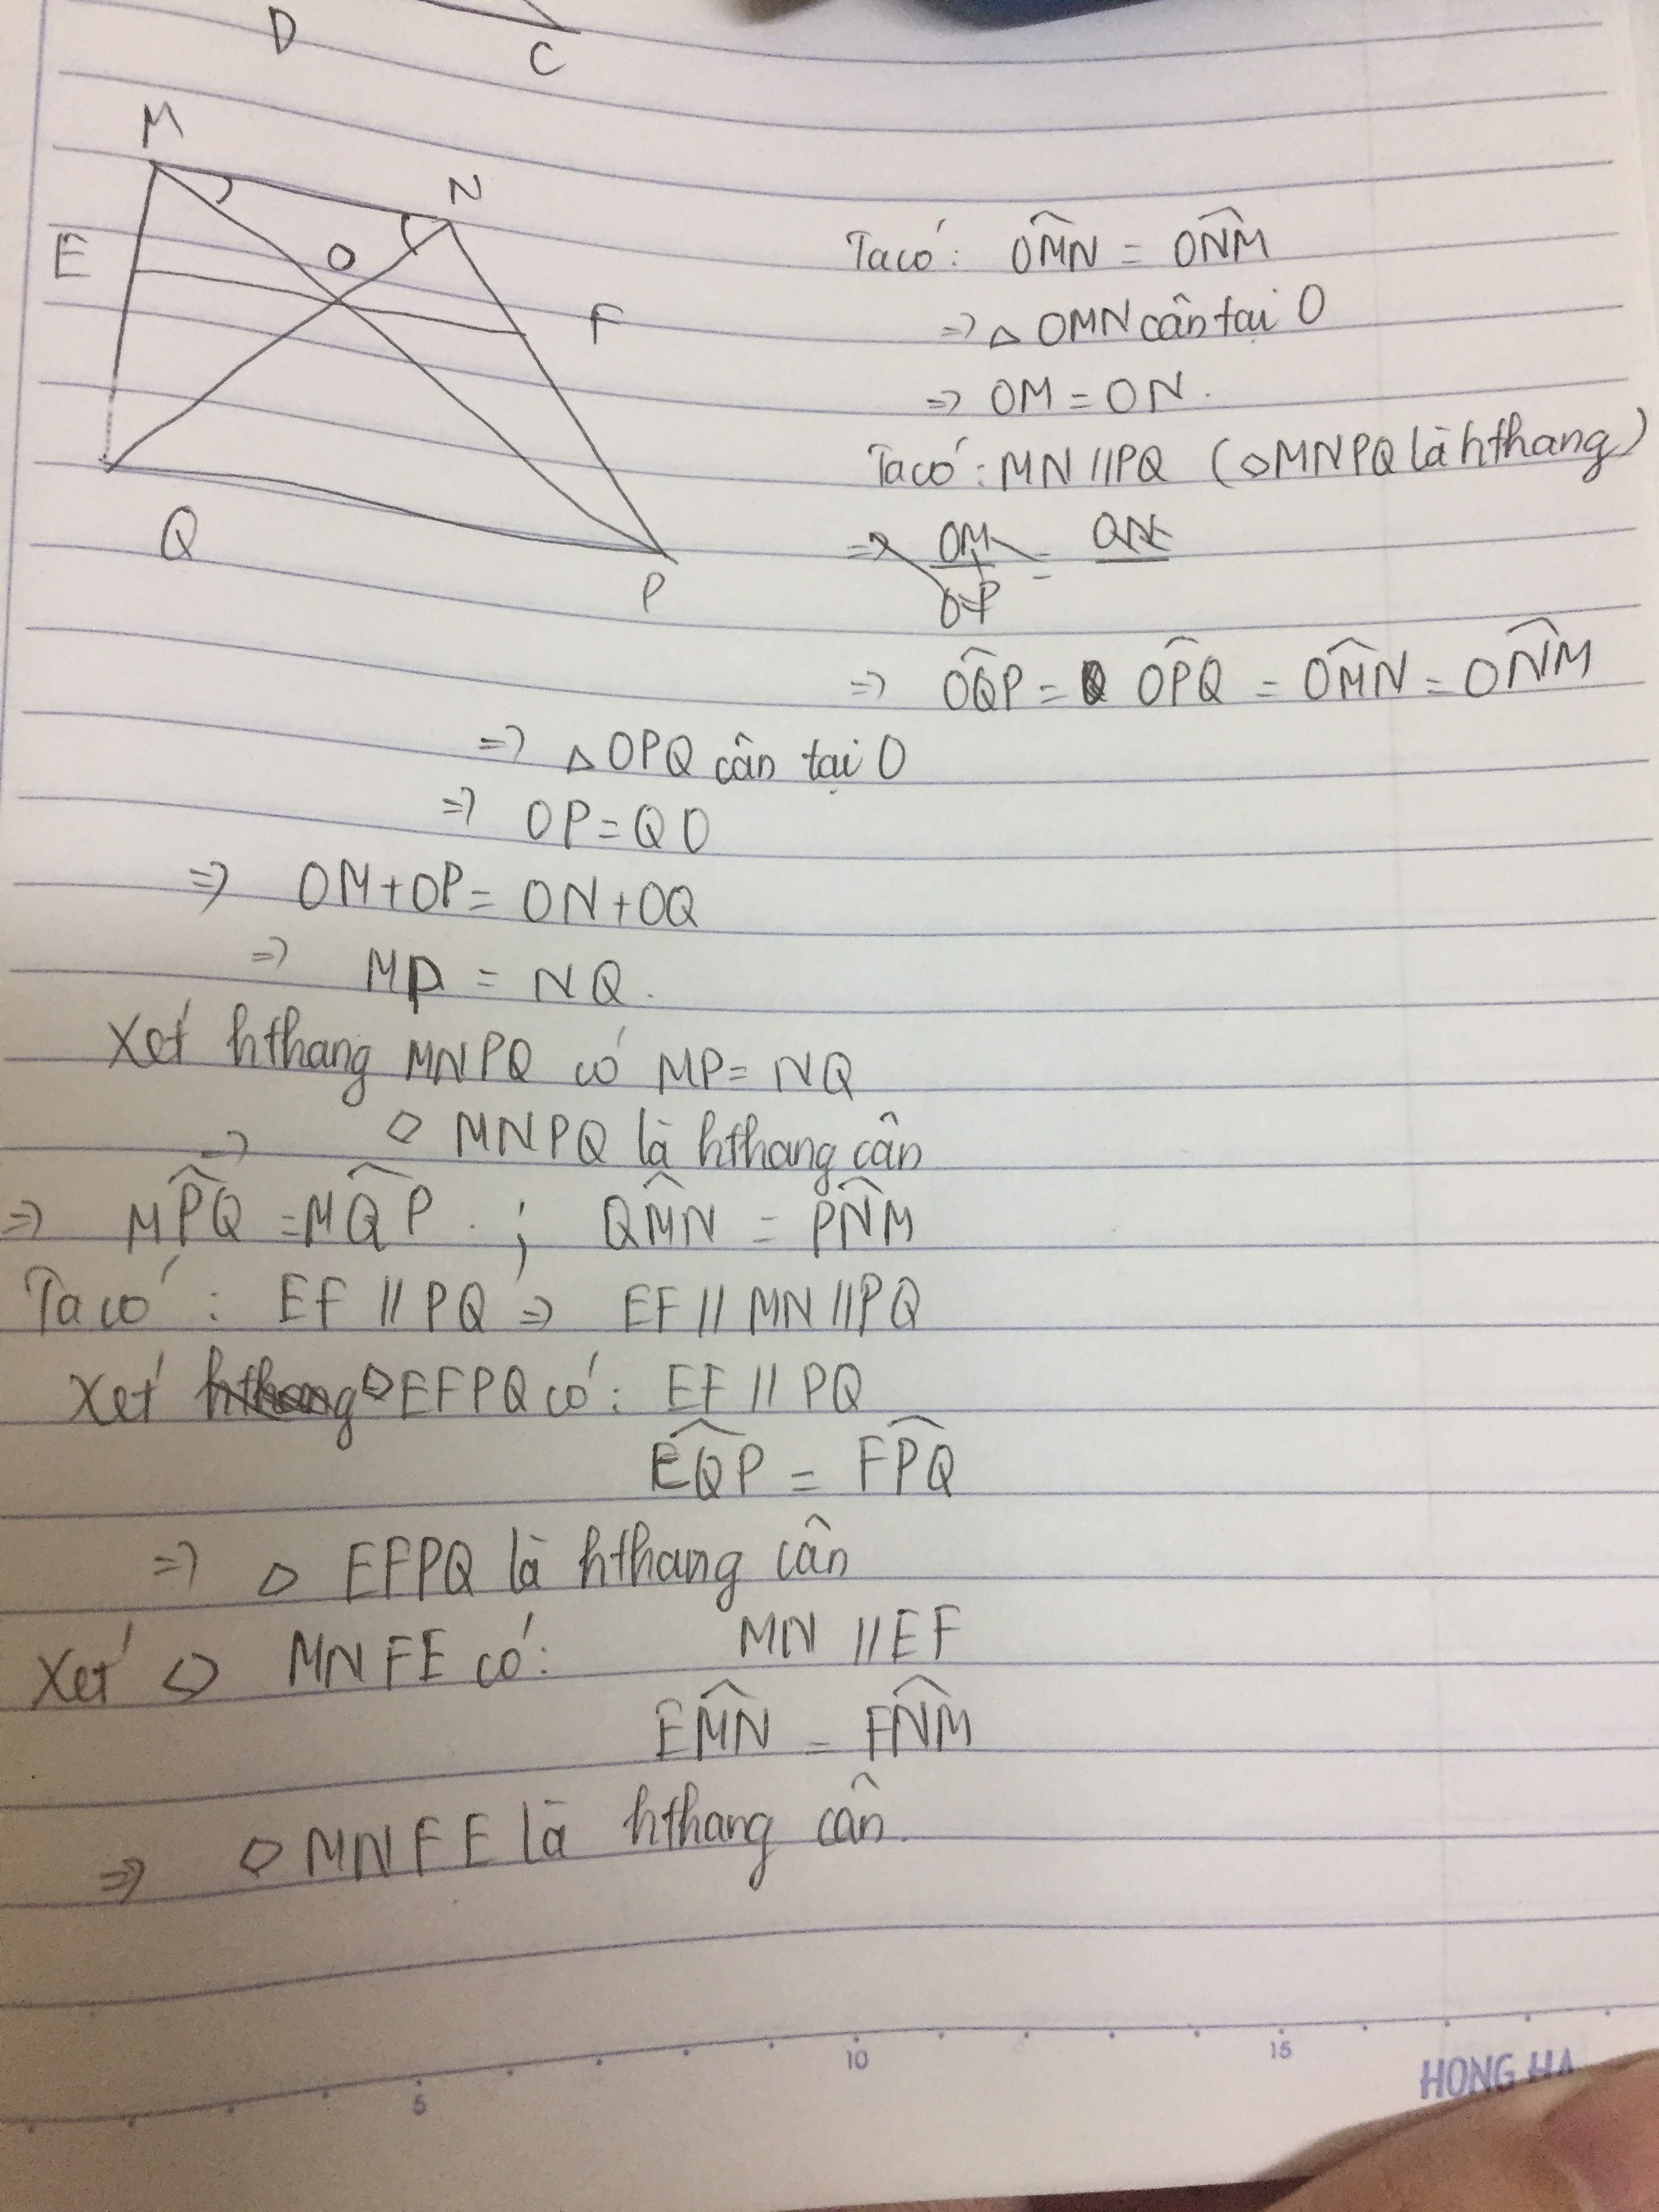 D
C
M
N
E
O
F
Q
P
Ta có: OMN = ONM
=> △ OMN cân tại O
=> OM = ON.
Ta có: MN // PQ (◇MNPQ là hthang)
=> OM/OP =
=> OQP = OPQ = OMN = ONM
=> △ OPQ cân tại O
=> OP = QO
=> OM + OP = ON + OQ
=> MP = NQ.
Xét hthang MNPQ có MP = NQ
=> ◇ MNPQ là hthang cân
=> MPQ = MQP ; QMN = PNM
Ta có: EF // PQ => EF // MN // PQ
Xét hthang ◇ EFPQ có: EF // PQ
EQP = FPQ
=> ◇ EFPQ là hthang cân
Xét ◇ MNFE có: MN // EF
EMN = FNM
=> ◇ MNFE là hthang cân.
5 10 15
HONG HA